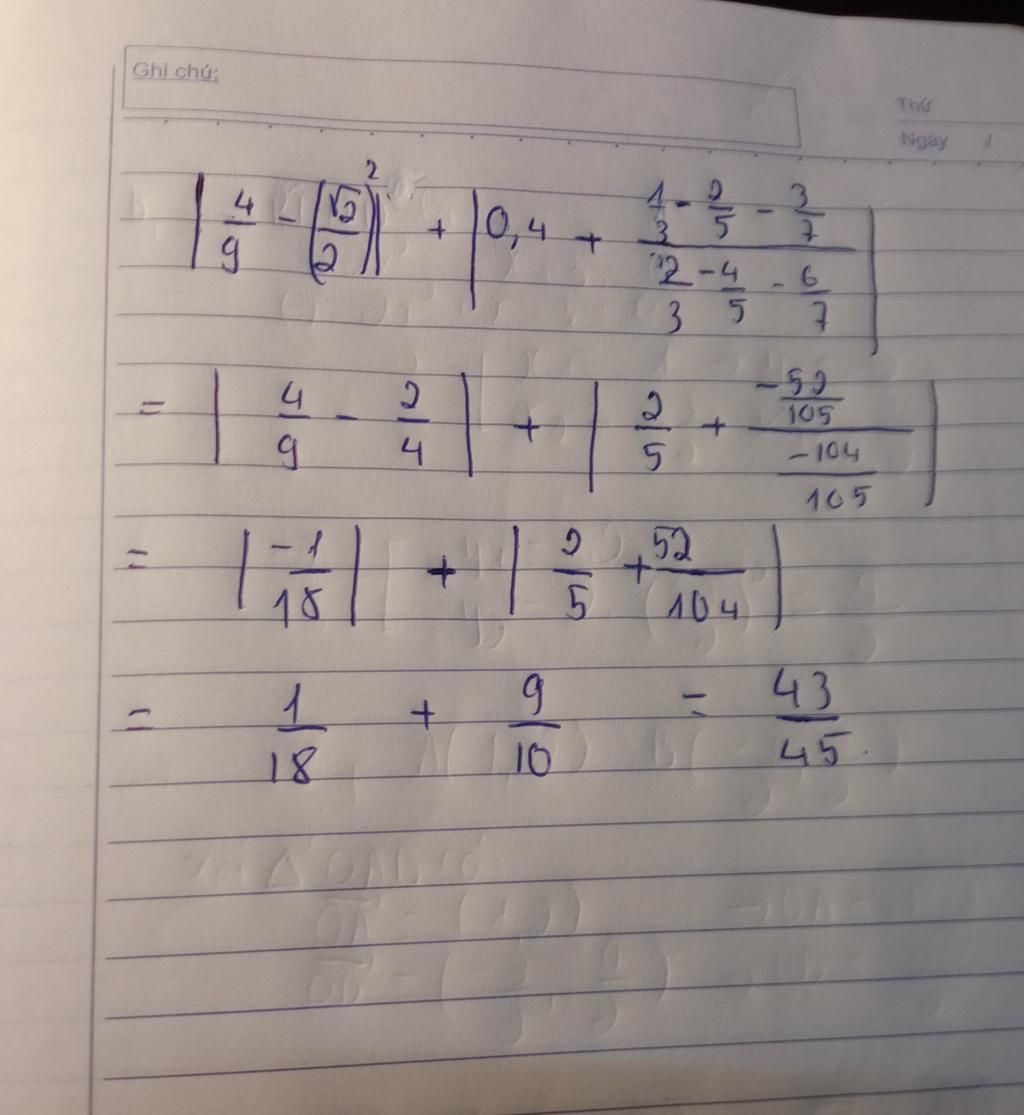 Ghi chú:
Thứ
Ngày /
| 4/9 - (√2/2)² | + | 0,4 + (1/3 - 2/5 - 3/7)/(2/3 - 4/5 - 6/7) |
= | 4/9 - 2/4 | + | 2/5 + (-52/105)/(-104/105) |
= | -1/18 | + | 2/5 + 52/104 |
= 1/18 + 9/10 = 43/45